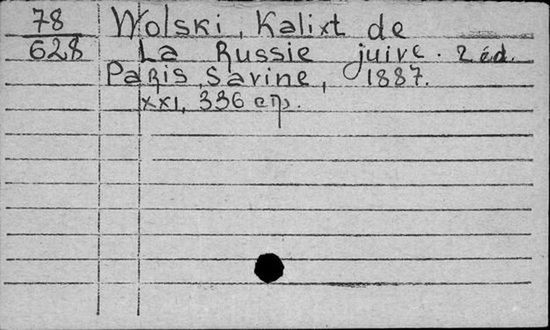 78 Wolski, Kalixt de
628 La Russie juive. 2 éd.
Paris, Savine, 1887.
XXI, 336 стр.